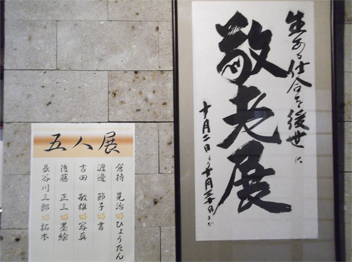 生ある仕合を後世に
敬老展
十月二日〜
五人展
倉持 晃治 ひょうたん
渡邊 節子 書
吉田 敏雄 写真
後藤 正三 墨絵
長谷川三郎 拓本